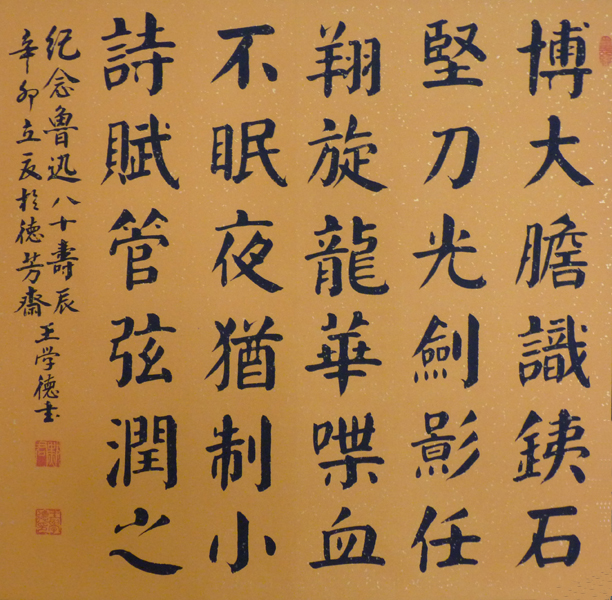 博大膽識銕石
堅刀光劍影任
翔旋龍華喋血
不眠夜猶制小
詩賦管弦潤之
紀念魯迅八十壽辰
辛卯立夏於德芳齋
王学德书